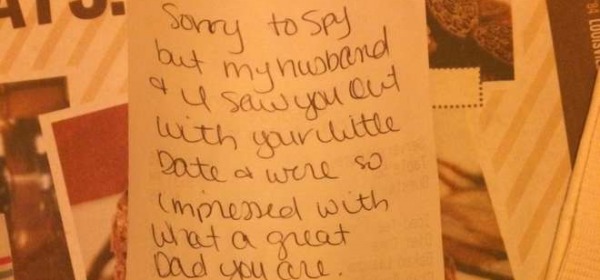 AYS.
Sorry to spy
but my husband
& I saw you out
with your little
Date & were so
impressed with
what a great
Dad you are.